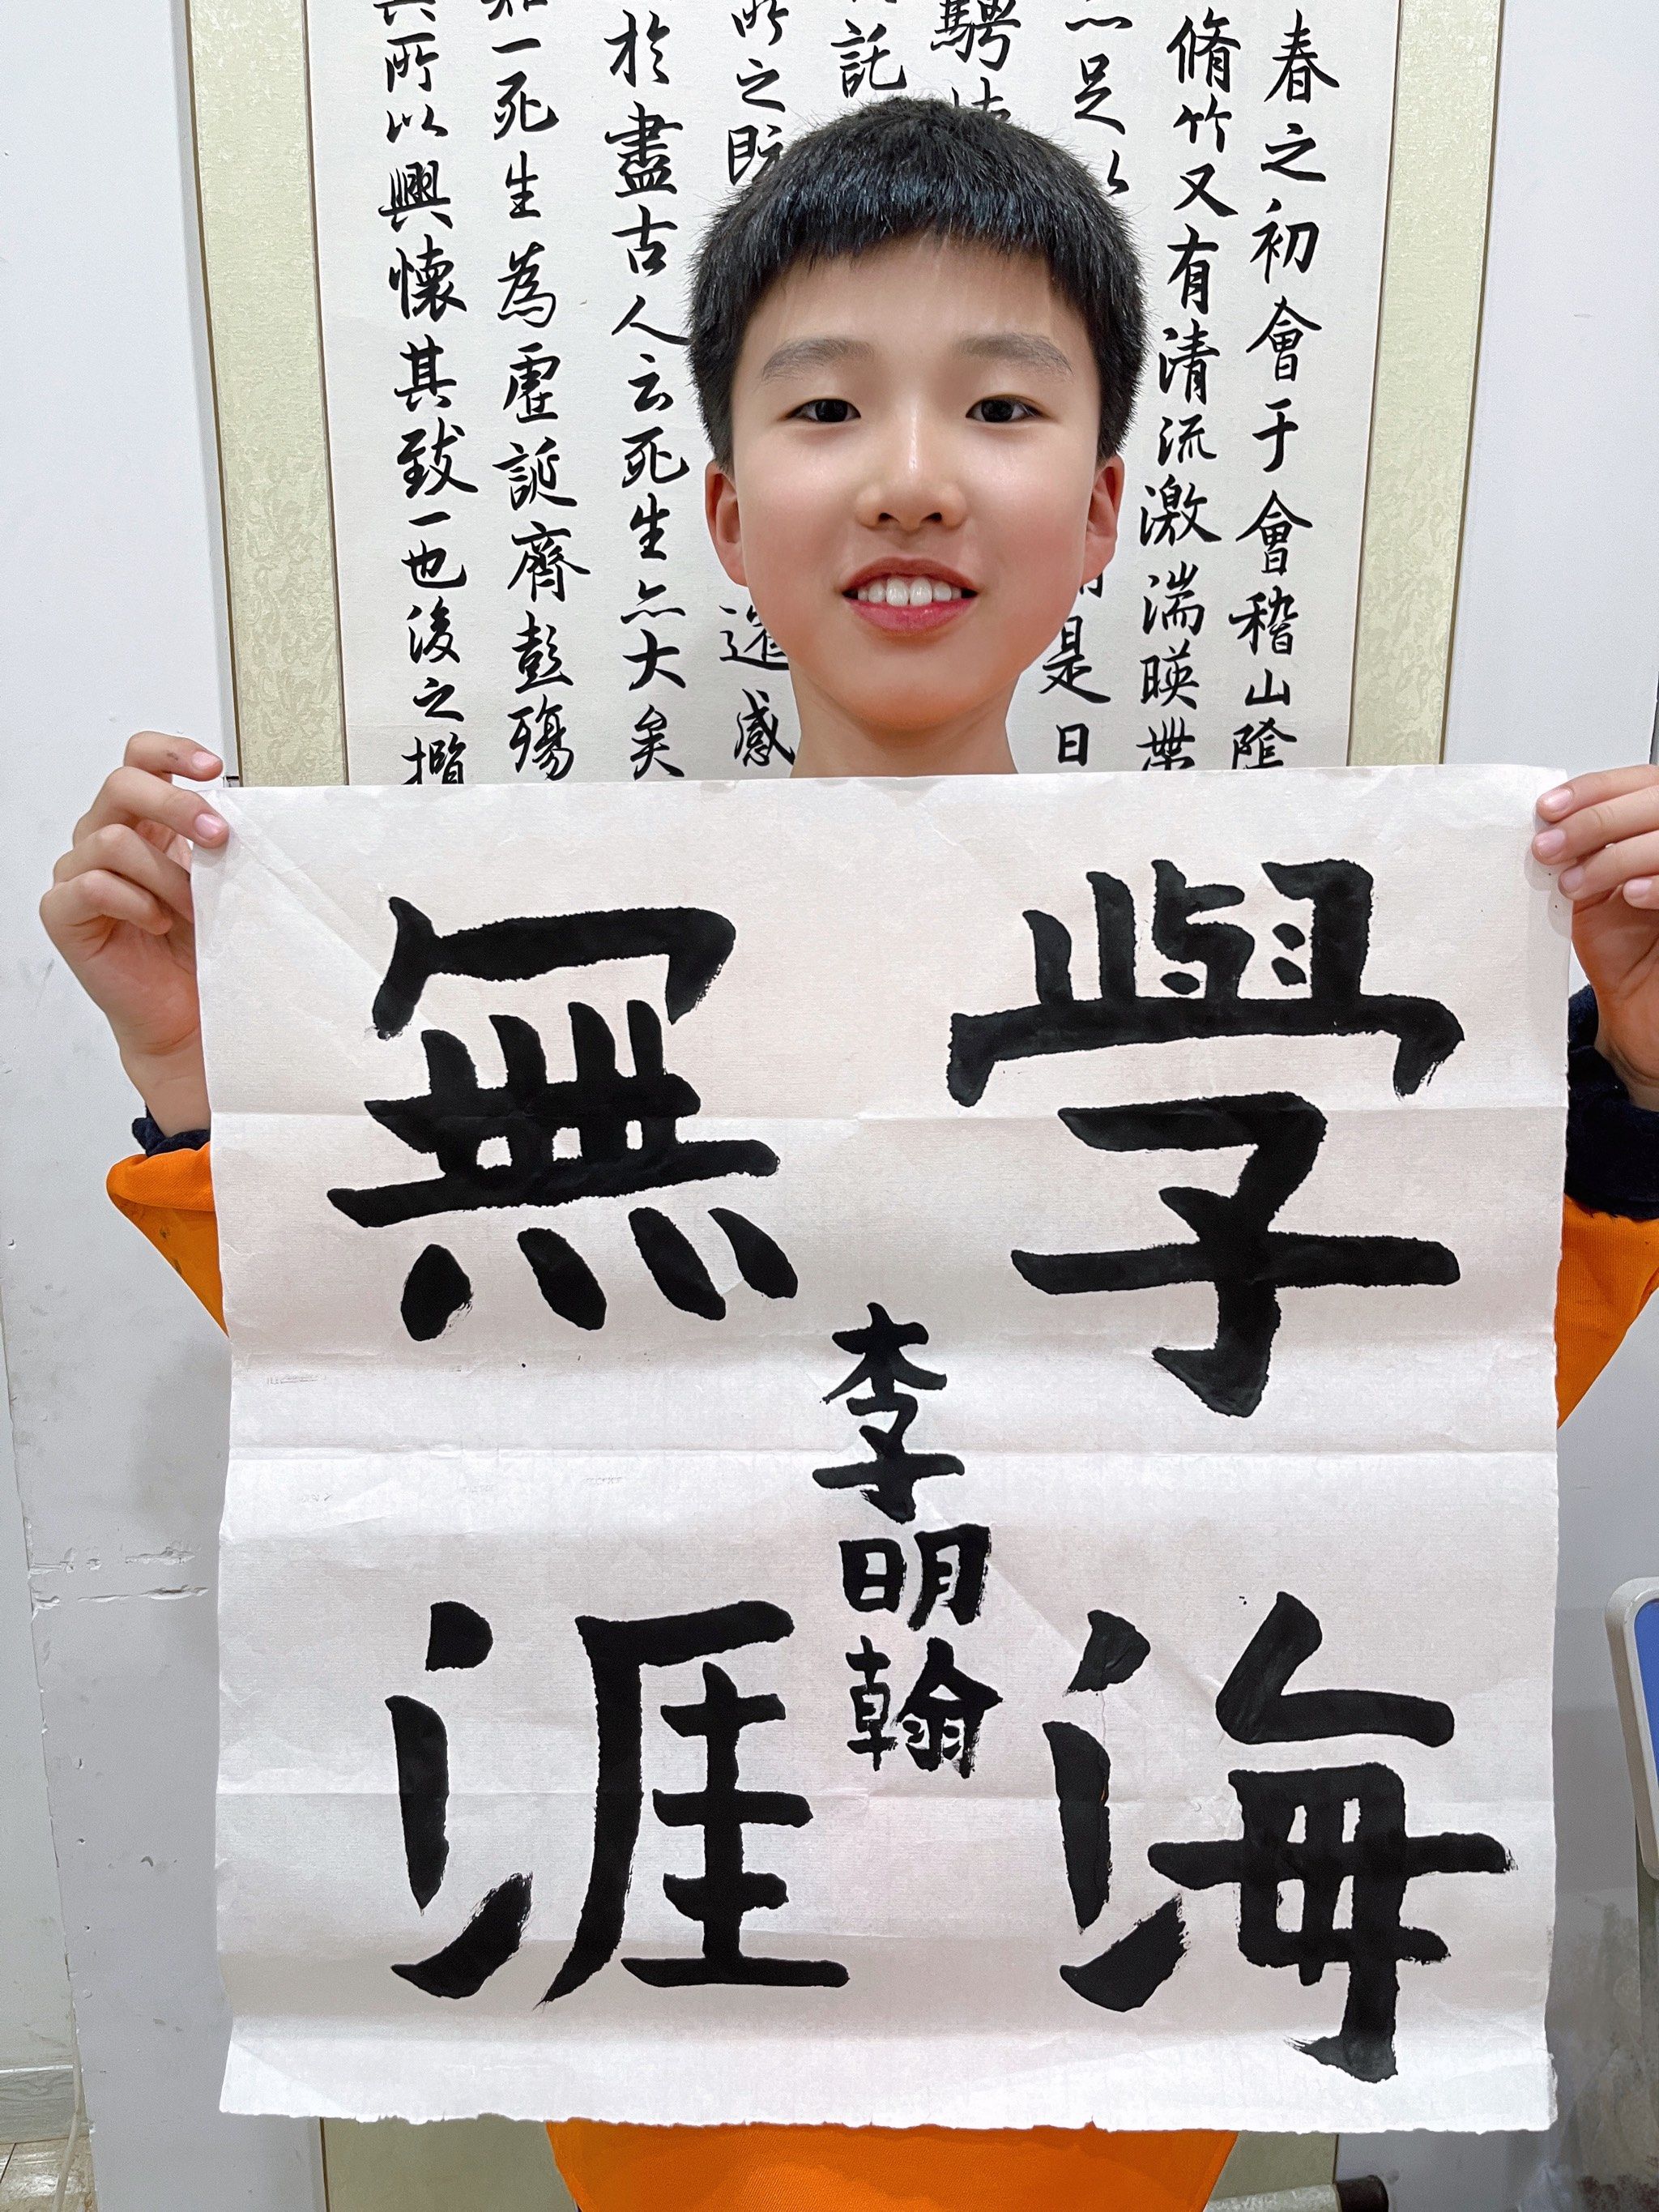 春之初會于會稽山陰
脩竹又有清流激湍暎帶
亦足以是日
騁
託
所之既遷感
於盡古人云死生亦大矣
一死生為虛誕齊彭殤
所以興懷其致一也後之攬
學海
無涯
李明翰